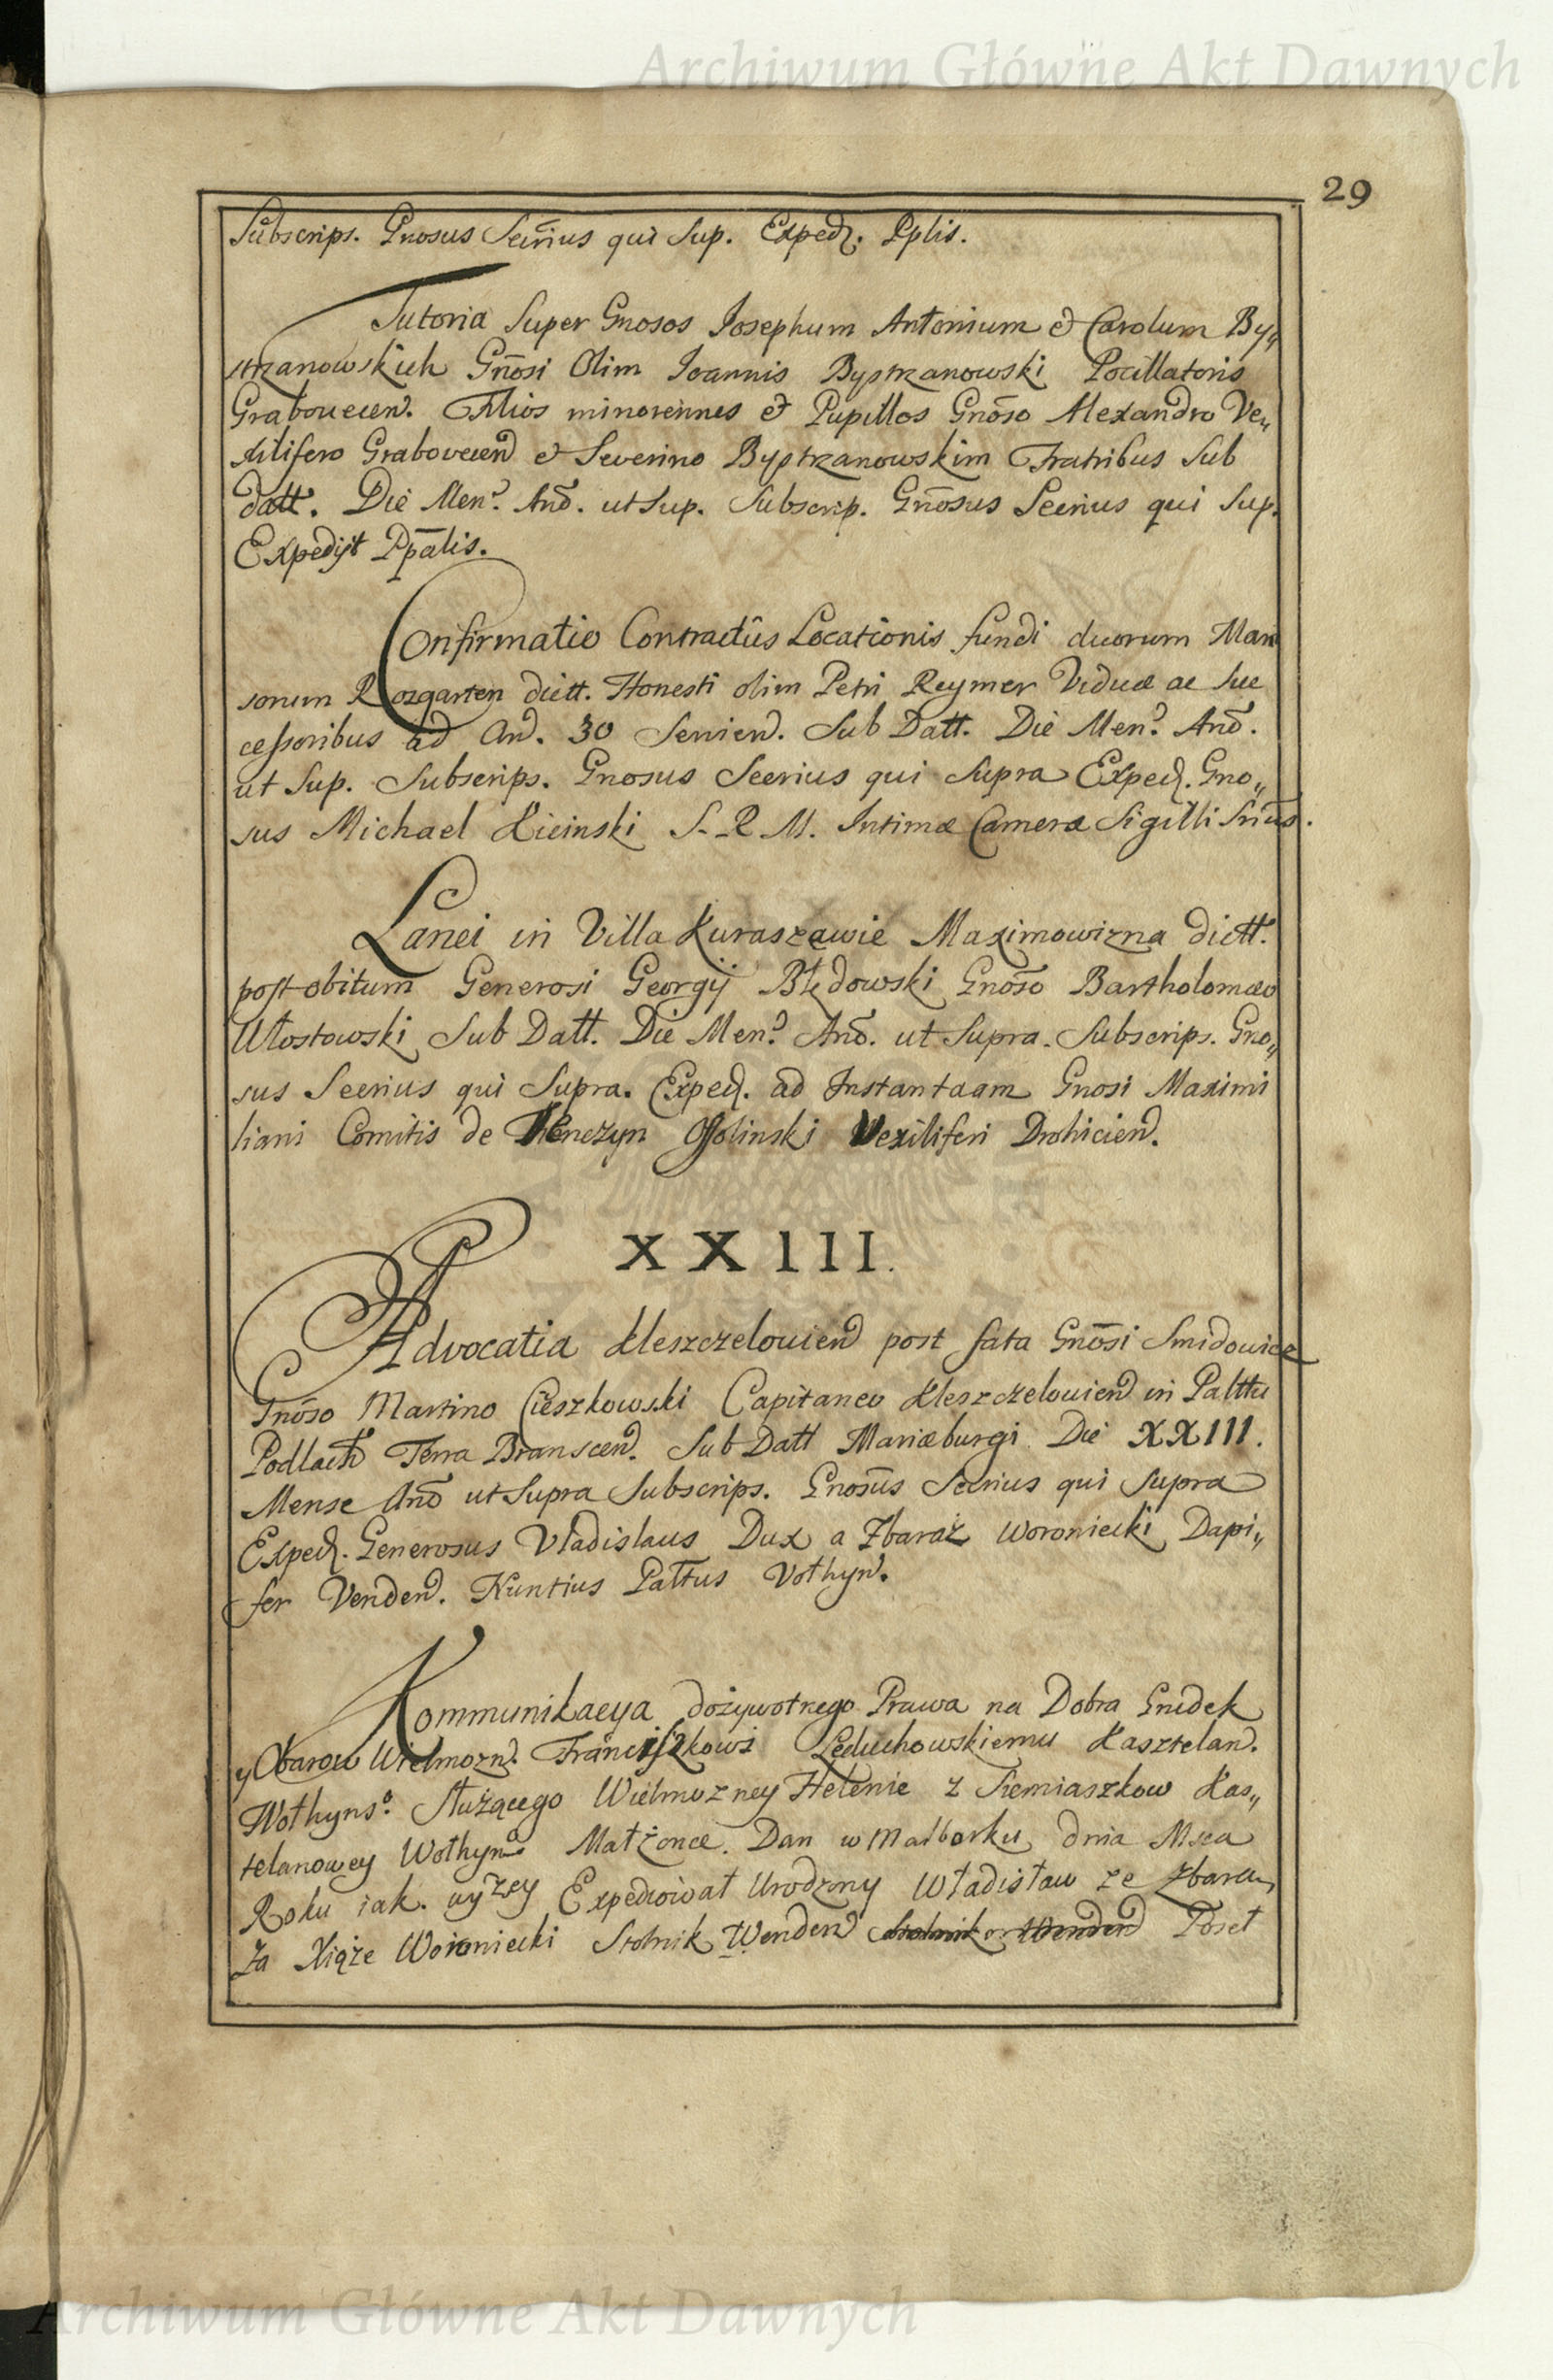 Archiwum Główne Akt Dawnych
29
Subscrips. Gnosus Secrius qui Sup. Exped. Pplis.
Tutoria Super Gnosos Iosephum Antonium et Carolum By„
strzanowskich Gnosi Olim Ioannis Bystrzanowski Pocillatoris
Grabovecen. Filios minorennes et Pupillos Gnoso Alexandro Ve„
xilifero Grabovecen et Severino Bystrzanowskim Fratribus Sub
datt. Die Men. Ano. ut Sup. Subscrip. Gnosus Secrius qui Sup.
Expedijt Ppalis.
Confirmatio Contractûs Locationis fundi duorum Man
sorum Rozgarten dictt. Honesti olim Petri Reymer Viduæ ac Suc
cessoribus ad An. 30 Servien. Sub Datt. Die Men. Ano.
ut Sup. Subscrips. Gnosus Secrius qui Supra Exped. Gno„
sus Michael Kicinski S. R. M. Intimæ Cameræ Sigilli Srius.
Lanei in Villa Kuraszewie Maximowizna dictt.
post obitum Generosi Georgij Błędowski Gnoso Bartholomæo
Włostowski Sub Datt. Die Men. Ano. ut Supra. Subscrips. Gno„
sus Secrius qui Supra. Exped. ad Instantaam Gnosi Maximi
liani Comitis de Tenczyn Ossolinski Vexiliferi Drohicien.
XXIII.
Advocatia Kleszczelovien post fata Gnosi Smidowicz
Gnoso Martino Cieszkowski Capitaneo Kleszczelovien in Palttu
Podlach Terra Branscen. Sub Datt Mariæburgi Die XXIII.
Mense Ano ut Supra Subscrips. Gnosus Secrius qui Supra
Exped. Generosus Vladislaus Dux a Zbaraż Woroniecki Dapi„
fer Venden. Nuntius Palttus Volhyn.
Kommunikacya dożywotnego Prawa na Dobra Gnidek
y Obarow Wielmozn. Franciszkowi Leduchowskiemu Kasztelan.
Wołhyns. Służącego Wielmozney Helenie z Siemiaszkow Kas„
telanowey Wołhyn Małżonce. Dan w Malborku dnia Msca
Roku iak. wyzey Expediował Urodzony Władisław ze Zbara„
ża Xiąże Woroniecki Stolnik Wenden Stolnik Wenden Poseł
Archiwum Główne Akt Dawnych